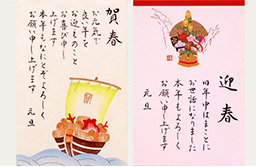 賀春
お元気で
良い年を
お迎えのこと
お喜び申し
上げます
本年もなにとぞよろしく
お願い申し上げます
元旦
迎春
旧年中はまことに
お世話になりました
本年もよろしく
お願い申し上げます
元旦